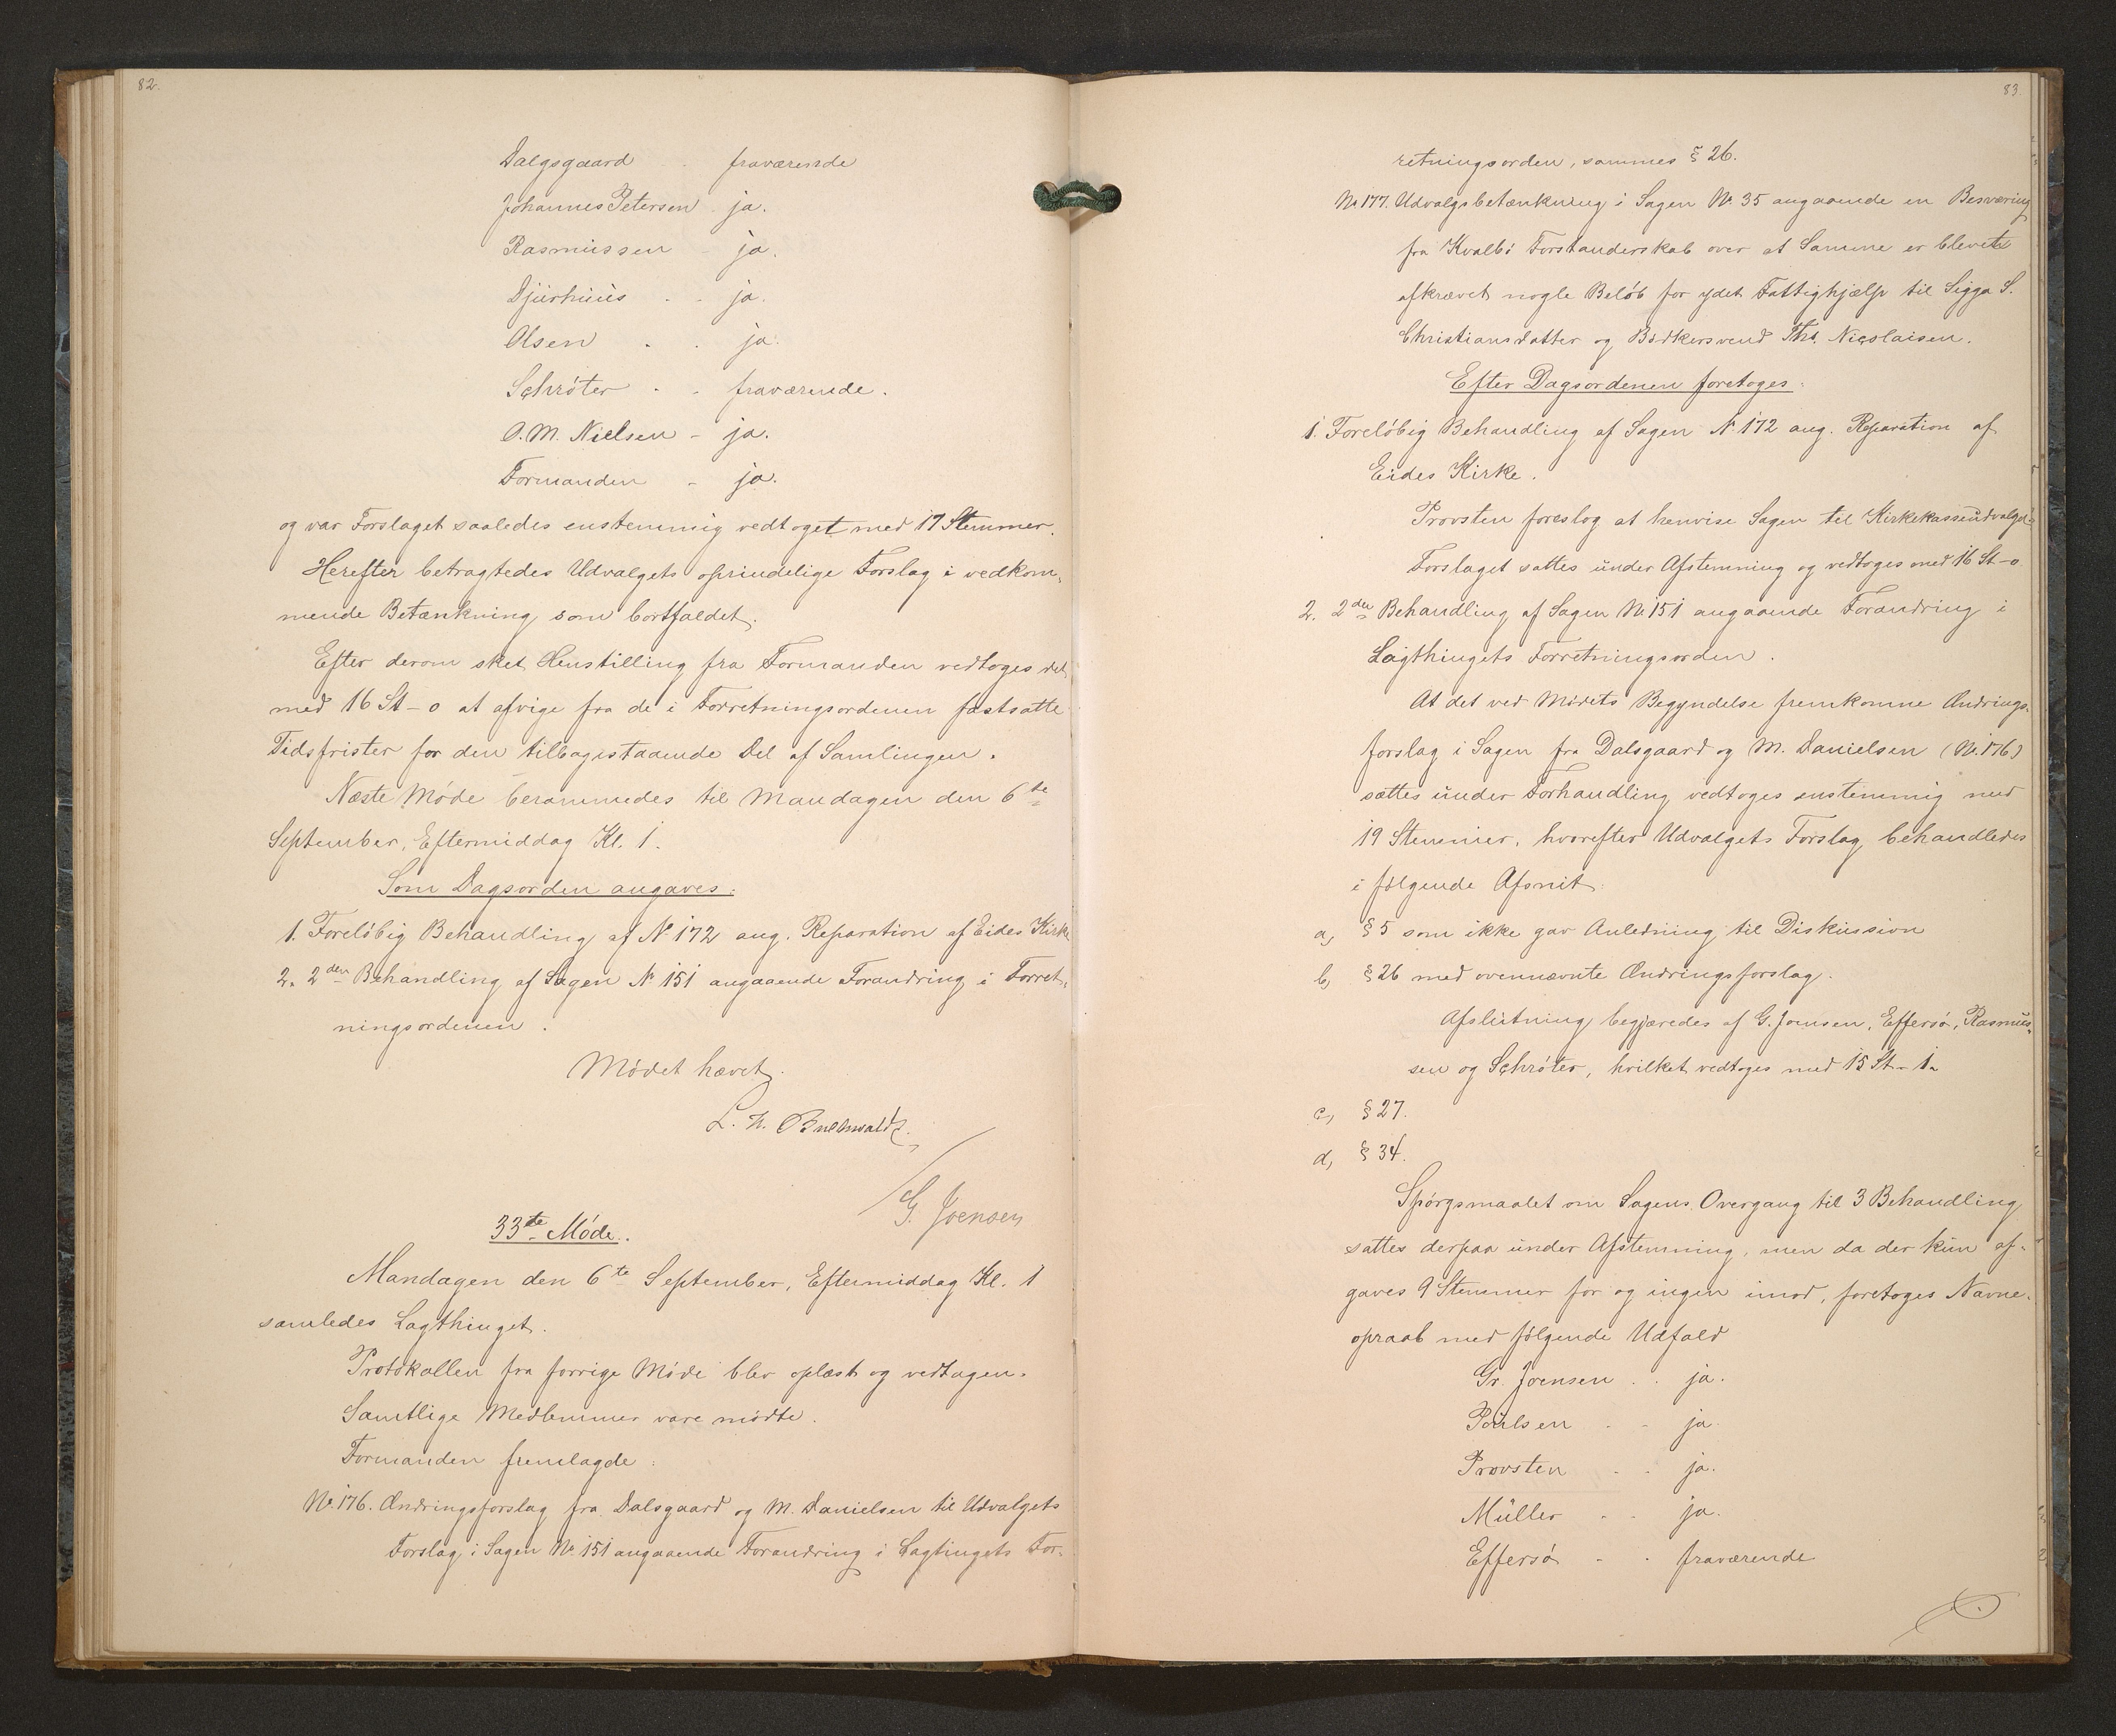 82.
Dalgsgaard - fraværende
Johannes Petersen - ja.
Rasmussen - ja.
Djurhuus - - ja.
Olsen - - ja.
Schrøter - - fraværende.
O. M. Nielsen - ja.
Formanden - ja.
og var Forslaget saaledes enstemmig vedtoget med 17 Stemmer.
Herefter betragtedes Udvalgets oprindelige Forslag i vedkom-
mende Betænkning som bortfaldet.
Efter derom sket Henstilling fra Formanden vedtoges det
med 16 St - 0 at afvige fra de i Forretningsordenen fastsatte
Tidsfrister for den tilbagestaaende Del af Samlingen.
Næste Møde berammedes til Mandagen den 6te
September, Eftermiddag Kl. 1.
Som Dagsorden angaves:
1. Foreløbig Behandling af No 172 ang. Reparation af Eides Kirke
2. 2den Behandling af Sagen No 151 angaaende Forandring i Forret-
ningsordenen.
Mødet hævet.
G. Joensen
33te Møde.
Mandagen den 6te September, Eftermiddag Kl. 1
samledes Lagthinget.
Protokollen fra forrige Møde blev oplæst og vedtagen.
Samtlige Medlemmer vare mødte.
Formanden fremlagde:
No. 176. Ændringsforslag fra Dalsgaard og M. Danielsen til Udvalgets
Forslag i Sagen No 151 angaaende Forandring i Lagtingets For-
83.
retningsorden, sammes § 26.
No 177. Udvalgsbetænkning i Sagen No 35 angaaende en Besværing
fra Kvalbø Forstanderskab over at Samme er blevet
afkrævet nogle Beløb for ydet Fattighjælp til Sigga S.
Christiansdatter og Bødkersvend Ths. Nicolaisen.
Efter Dagsordenen foretoges:
1. Foreløbig Behandling af Sagen No 172 ang. Reparation af
Eides Kirke.
Provsten foreslog at henvise Sagen til Kirkekasseudvalget.
Forslaget sattes under Afstemning og vedtoges med 16 St - 0
2. 2den Behandling af Sagen No 151 angaaende Forandring i
Lagthingets Forretningsorden.
At det ved Mødets Begyndelse fremkomne Ændrings-
forslag i Sagen fra Dalsgaard og M. Danielsen (No. 176)
sattes under Forhandling vedtoges enstemmig med
19 Stemmer, hvorefter Udvalgets Forslag behandledes
i følgende Afsnit:
a, § 5 som ikke gav Anledning til Diskussion
b, § 26 med ovennævnte Ændringsforslag.
Afslutning begjæredes af G. Joensen, Effersø, Rasmus-
sen og Schrøter, hvilket vedtoges med 15 St - 1.
c, § 27.
d, § 34.
Spørgsmaalet om Sagens Overgang til 3 Behandling
sattes derpaa under Afstemning, men da der kun af-
gaves 9 Stemmer for og ingen imod, foretoges Navne-
opraab med følgende Udfald
Gr. Joensen - - ja.
Poulsen - - ja.
Provsten - - ja.
Müller - - ja.
Effersø - - fraværende